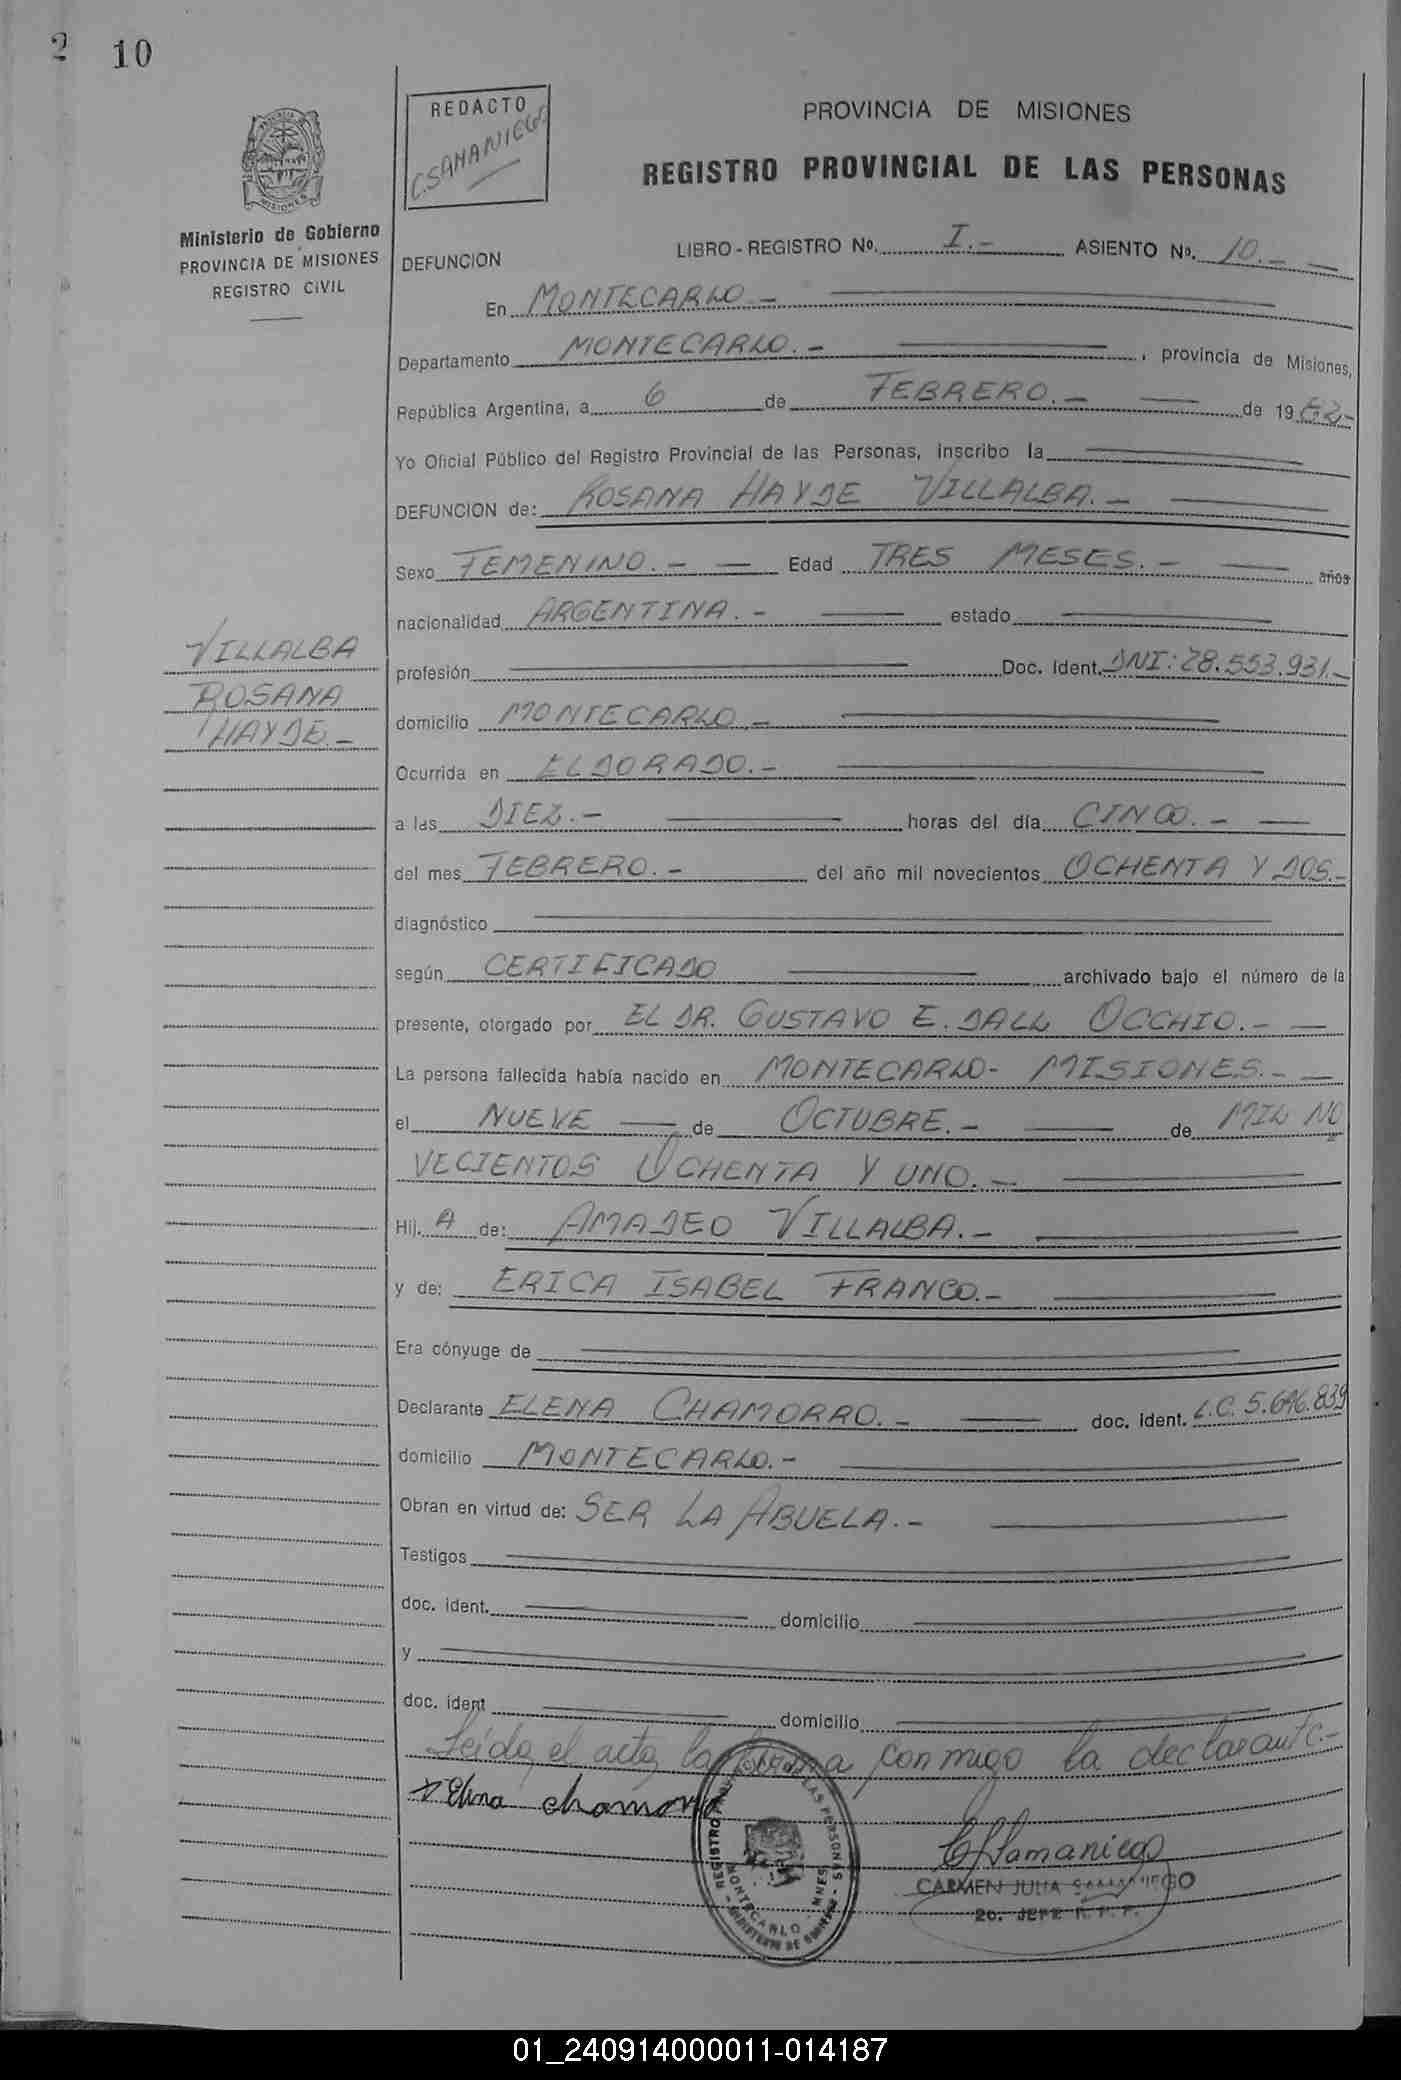 2 10
REDACTO
C SAMANIEGO
PROVINCIA DE MISIONES
REGISTRO PROVINCIAL DE LAS PERSONAS
Ministerio de Gobierno
PROVINCIA DE MISIONES
REGISTRO CIVIL
DEFUNCION
LIBRO - REGISTRO Nº. I.- ASIENTO Nº. 10.-
En MONTECARLO.-
Departamento MONTECARLO.- , provincia de Misiones,
República Argentina, a 6 de FEBRERO.- de 1982.-
Yo Oficial Público del Registro Provincial de las Personas, inscribo la
DEFUNCION de: ROSANA HAYDE VILLALBA.-
Sexo FEMENINO.- Edad TRES MESES.- años
nacionalidad ARGENTINA.- estado
VILLALBA
ROSANA
HAYDE.-
profesión Doc. Ident. DNI: 28.553.931.-
domicilio MONTECARLO.-
Ocurrida en ELDORADO.-
a las DIEZ.- horas del día CINCO.-
del mes FEBRERO.- del año mil novecientos OCHENTA Y DOS.-
diagnóstico
según CERTIFICADO archivado bajo el número de la
presente, otorgado por EL DR. GUSTAVO E. DALL OCCHIO.-
La persona fallecida había nacido en MONTECARLO- MISIONES.-
el NUEVE de OCTUBRE.- de MIL NO
VECIENTOS OCHENTA Y UNO.-
Hij. A de: AMADEO VILLALBA.-
y de: ERICA ISABEL FRANCO.-
Era cónyuge de
Declarante ELENA CHAMORRO.- doc. ident. L.C. 5.696.839
domicilio MONTECARLO.-
Obran en virtud de: SER LA ABUELA.-
Testigos
doc. ident. domicilio
y
doc. ident domicilio
Leida el acta, la firma conmigo la declarante.-
Elena chamorro
CSamaniego
CARMEN JULIA SAMANIEGO
2o. JEFE R. P. P.
REGISTRO PROVINCIAL DE LAS PERSONAS
MONTECARLO - MNES
- MINISTERIO DE GOBIERNO -
01_240914000011-014187